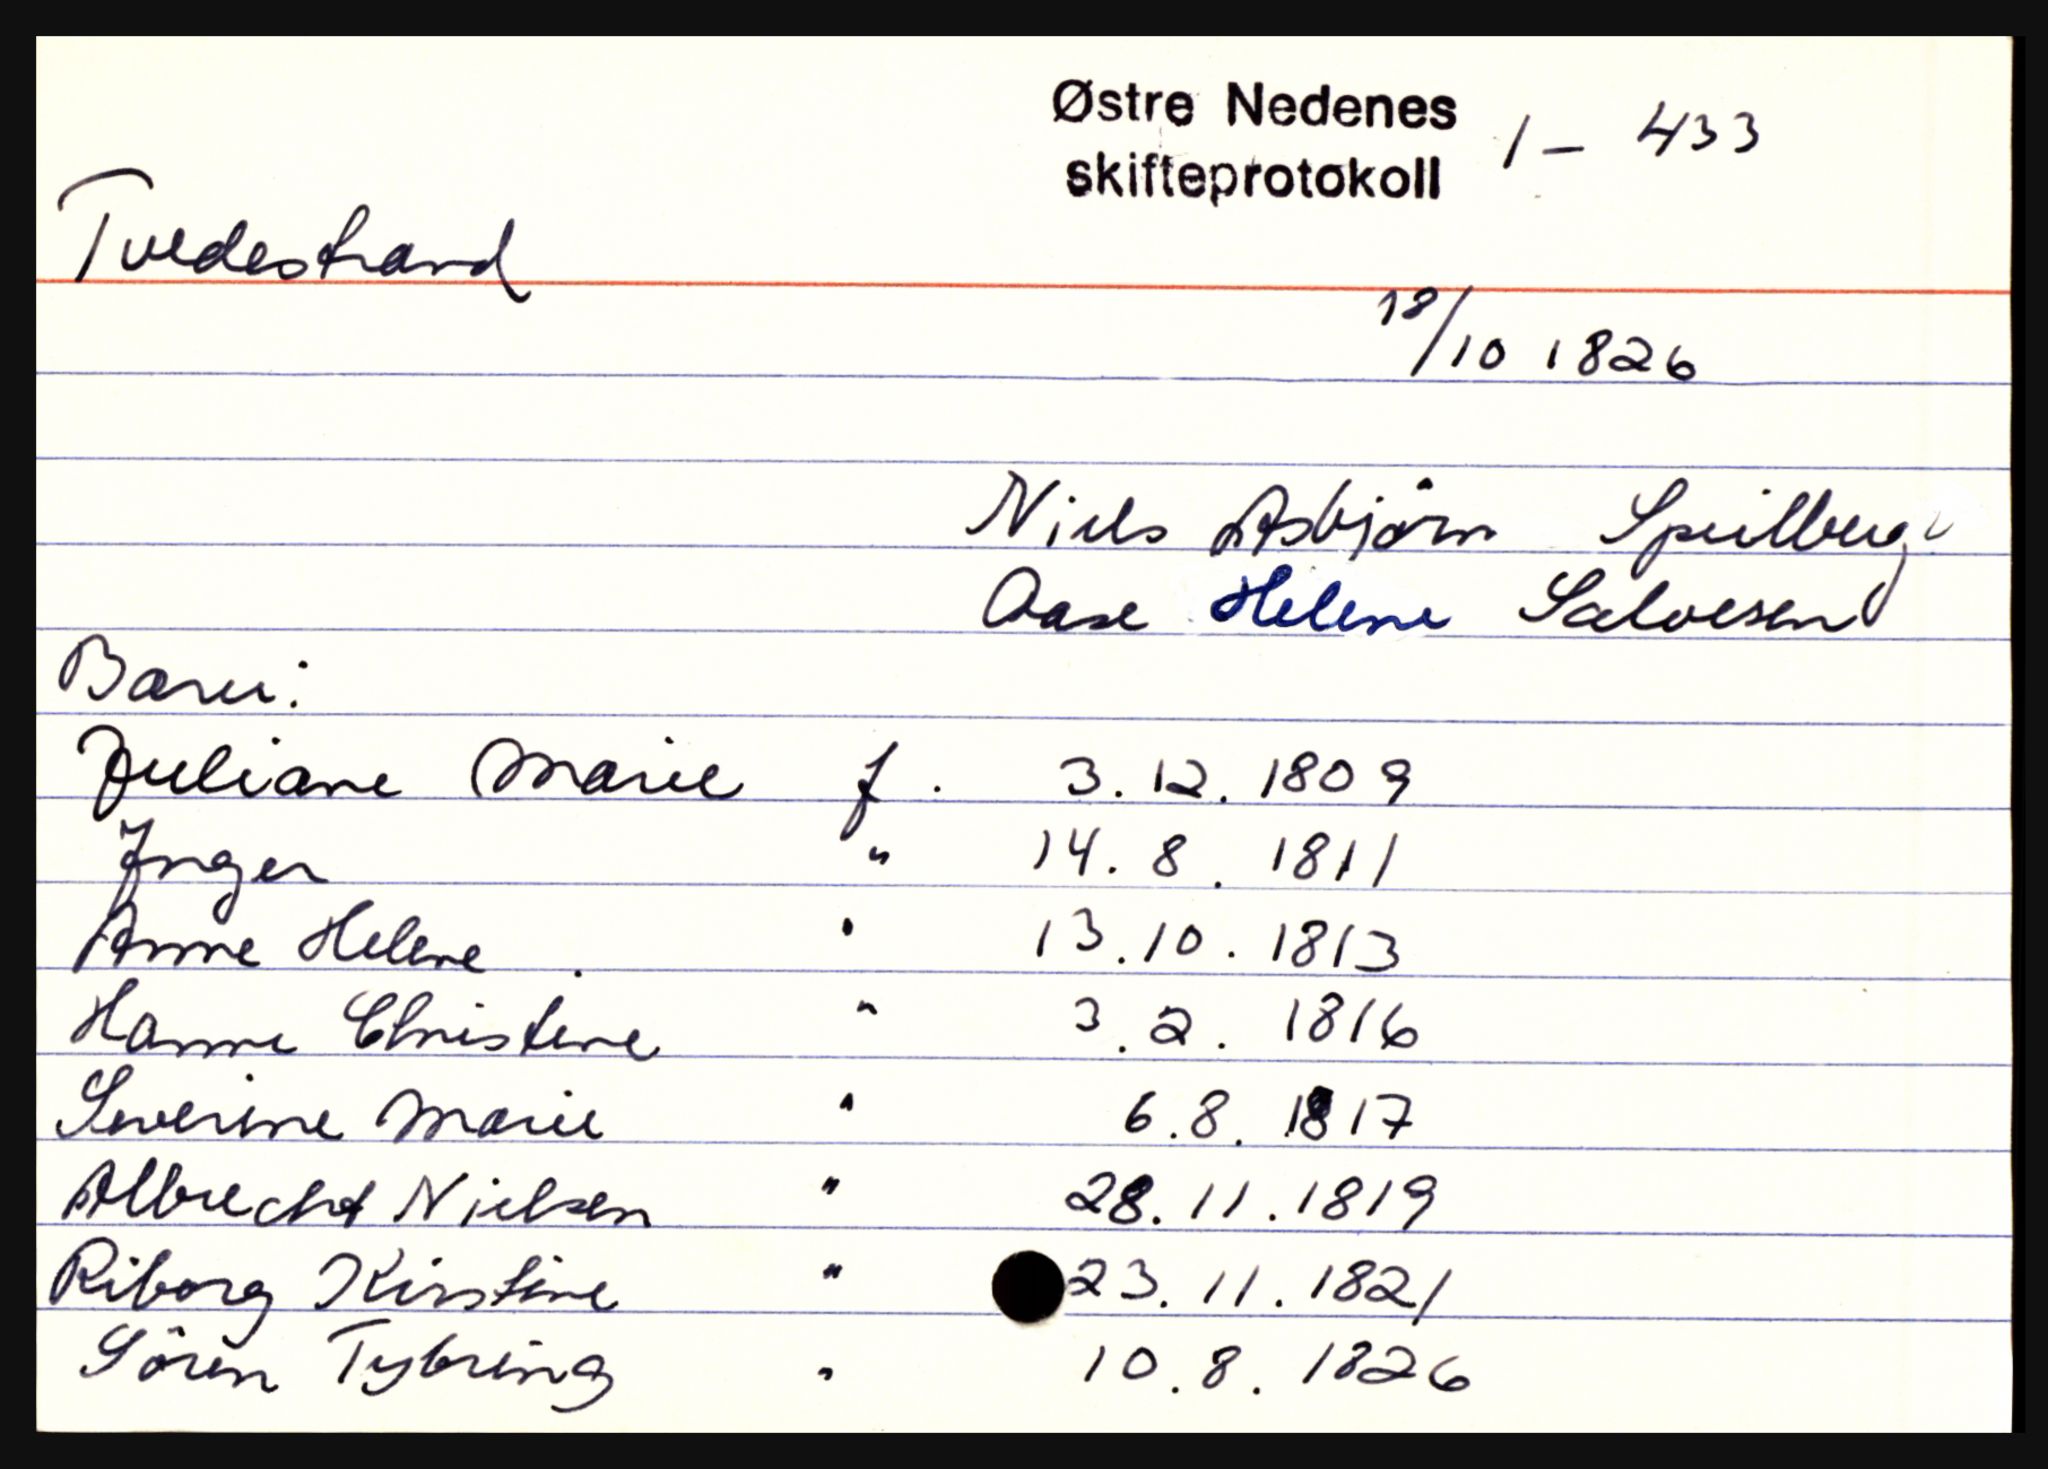 Østre Nedenes
skifteprotokoll 1 - 433
Tvedestrand
18/10 1826
Niels Asbjörn Speilberg
Aase Helene Salvesen
Barn:
Juliane Marie f. 3.12.1809
Inger " 14.8.1811
Anne Helene " 13.10.1813
Hanne Christine " 3.2.1816
Severine Marie " 6.8.1817
Albrecht Nielsen " 28.11.1819
Riborg Kirstine " 23.11.1821
Sören Tybring " 10.8.1826